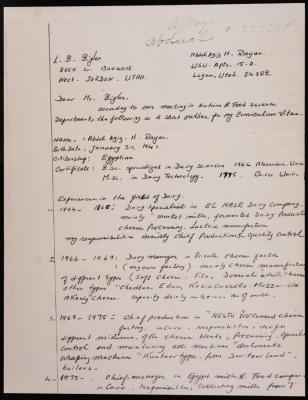 Abdual
L. B. Bigler
8050 So. 1300 West
West. JORDON, UTAH.
Abdel Aziz H. Rayan.
USU Apts. 15-D.
Logan, Utah. 84322.
Dear Mr. Bigler.
according to our meeting in Nutrition & Food Science
Department, the following is a short outline for my Curriculum Vitae.
Name. : Abdel Aziz. H. Rayan.
Birth Date: January 30, 1941
Citizenship: Egyptian
Certificate: B.Sc. specialized in Dairy Sciences 1964 Alexandria Univ.
M.Sc. in Dairy Technology. 1975 Cairo Univ.
Experiences in the field of Dairy.
1. 1964 - 1965: Dairy Specialist in EL NASR Dairy Company.
mainly market milk, fermented Dairy Products
cheese Processing, Lactose manufacture
my responsibilities mainly chief Production & Quality control
2. 1966 - 1969: Dairy manager in Private Cheese factor
mainly cheese manufacture
of different types (Soft cheese - Fita, Domiati white cheese
other types "Cheddar, Edam, Kashkaval
Capacity daily
3. 1969 - 1975 = chief production in "NESTO Processed cheese
factory. in Cairo, responsibilities, design
different mixtures of the cheese blends, Processing, Quality
control and maintaining all machines automatic
wraping machine "Kustner type from Switzerland"
boilers.
4. 1975 - . Chief. manager in Egypt milk & Food company
in Cairo, Responsibilities, Collecting milk from